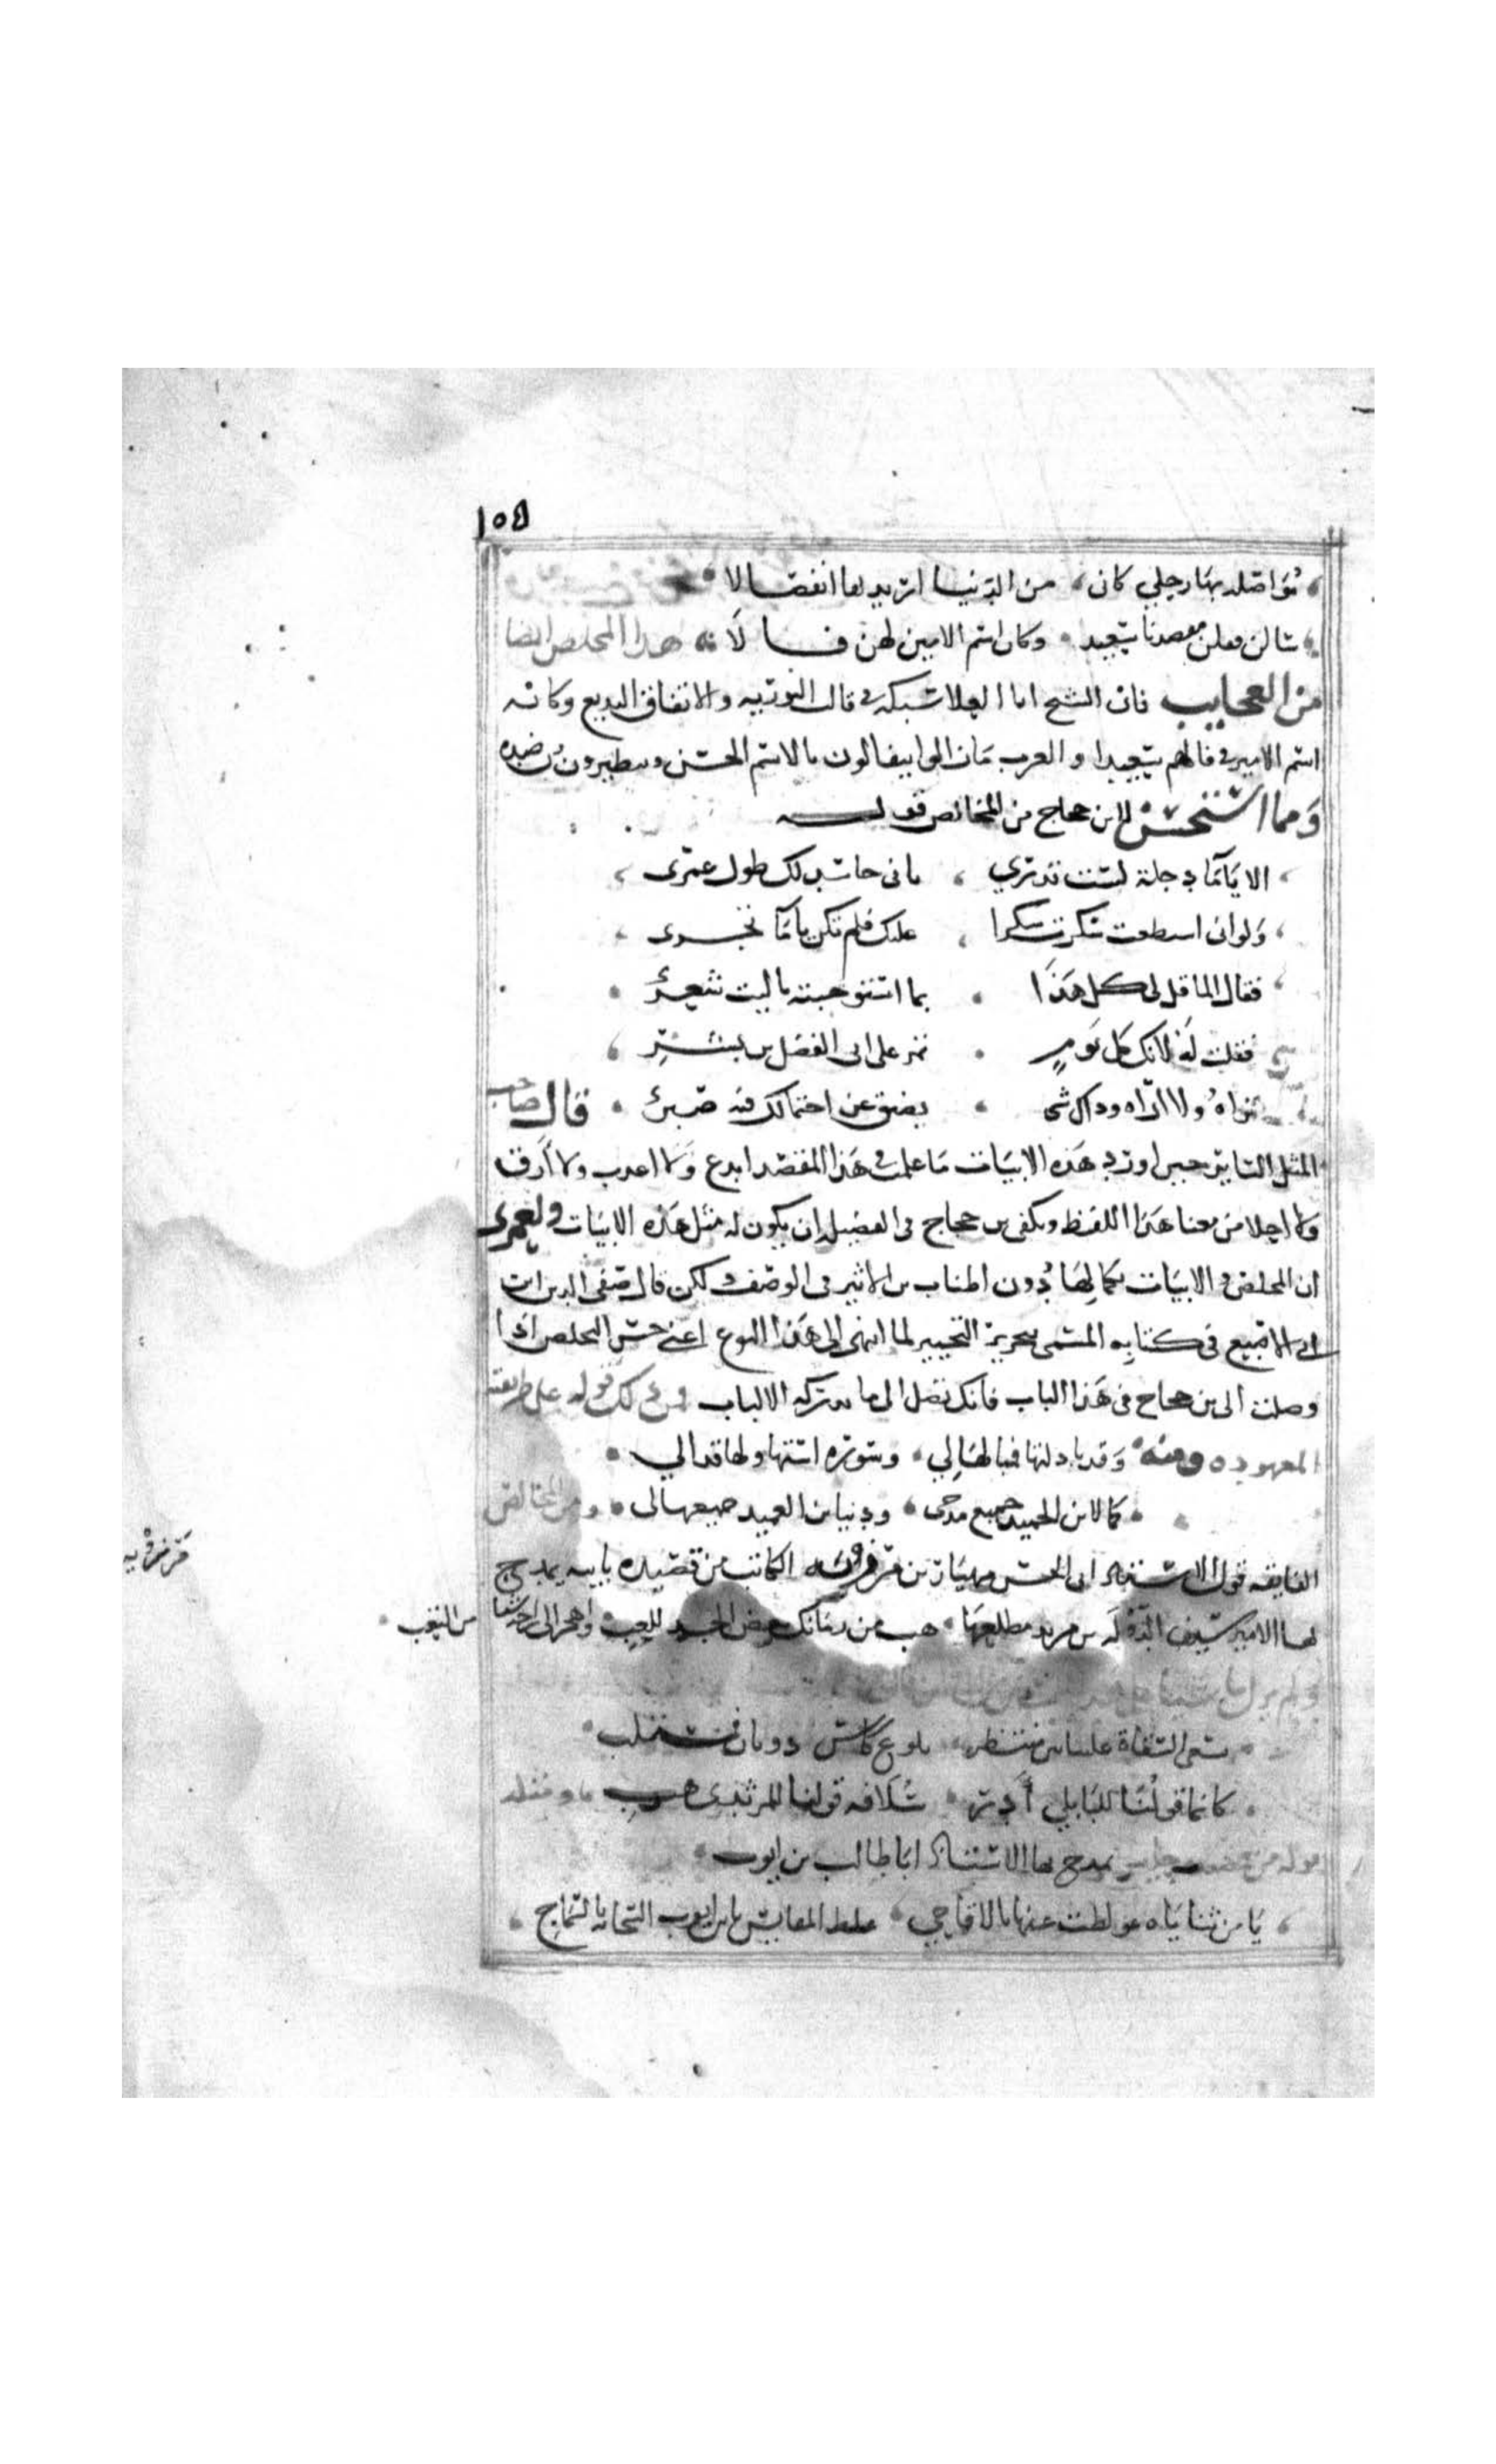 ١٥٤
نواصله بها رحلي كان ، من الدنيا اريد بها انفصالا
سالن فقلن مقصدنا سعيد ، وكان اسم الامير لهن فــالا هذا المخلص ايضا
من العجايب فان الشيخ ابا العلا سبكه في قالب التورية والاتفاق البديع وكانه
اسم الامير في فالهم سعيدا والعرب مازالوا يتفالون بالاسم الحسن ويتطيرون من ضده
ومما استحسن لابن حجاج من المخالص قولــه
الا يا ماء دجلة لست تدري ، باني حاسد لك طول عمري
ولو اني استطعت سكرت سكرا ، عليك فلم تكن يا ماء تجري
فقال الما قل لي كل هذا ، بما استوجبته يا ليت شعري
فقلت له لانك كل يوم ، تمر على ابي الفضل بن بشر
تراه ولا اراه وذاك شي ، يضيق عن احتمالك فيه صبري ، قال صاحب
المثل الساير حين اورد هذه الابيات ما علمت في هذا المقصد ابدع ولا اعذب ولا ارق
ولا احلا من معنا هذا اللفظ ويكفي بن حجاج في الفضيلة ان يكون له مثل هذه الابيات ولعمري
ان المخلص والابيات بكمالها دون اطناب بن الاثير في الوصف ولكن قال صفي الدين ابن
ابي الاصبع في كتابه المسمى بتحرير التحبير لما انتهى الى هذا النوع اعني حسن التخلص اذا
وصلت الى بن حجاج في هذا الباب فانك تصل الى ما لا تدركه الالباب فمن ذلك قوله على طريقته
المعهوده ومنه وقد بادلتها فبالها لي ، وسوره استها ولها قدالي
كما لابن الحميد جميع مدحي ، ودنيا بن العميد جميعها لي ، ومن المخالص
الفايقه قول الاستاذ ابي الحسن مهيار بن مرزويه الكاتب من قصيده باييه يمدح
مرزويه
بها الامير سيف الدوله بن مزيد مطلعها ، هب من زمانك بعض الجد للعب ، واهجر الى راحة شيا
من التعب
ولم يزل
تسعى السقاة علينا بين منتظر ، بلوغ كاس ووثاب فمستلب
كانما قولنا للبابلي ادر ، سلافة قولنا للمزيدي هب ، ومثله
قوله من يمدح بها الاستاذ ابا طالب بن ايوب
يا من ثناياه غولطت عنها بالاقاحي ، غلط المقايس بابن ايوب السحايب بالسماح